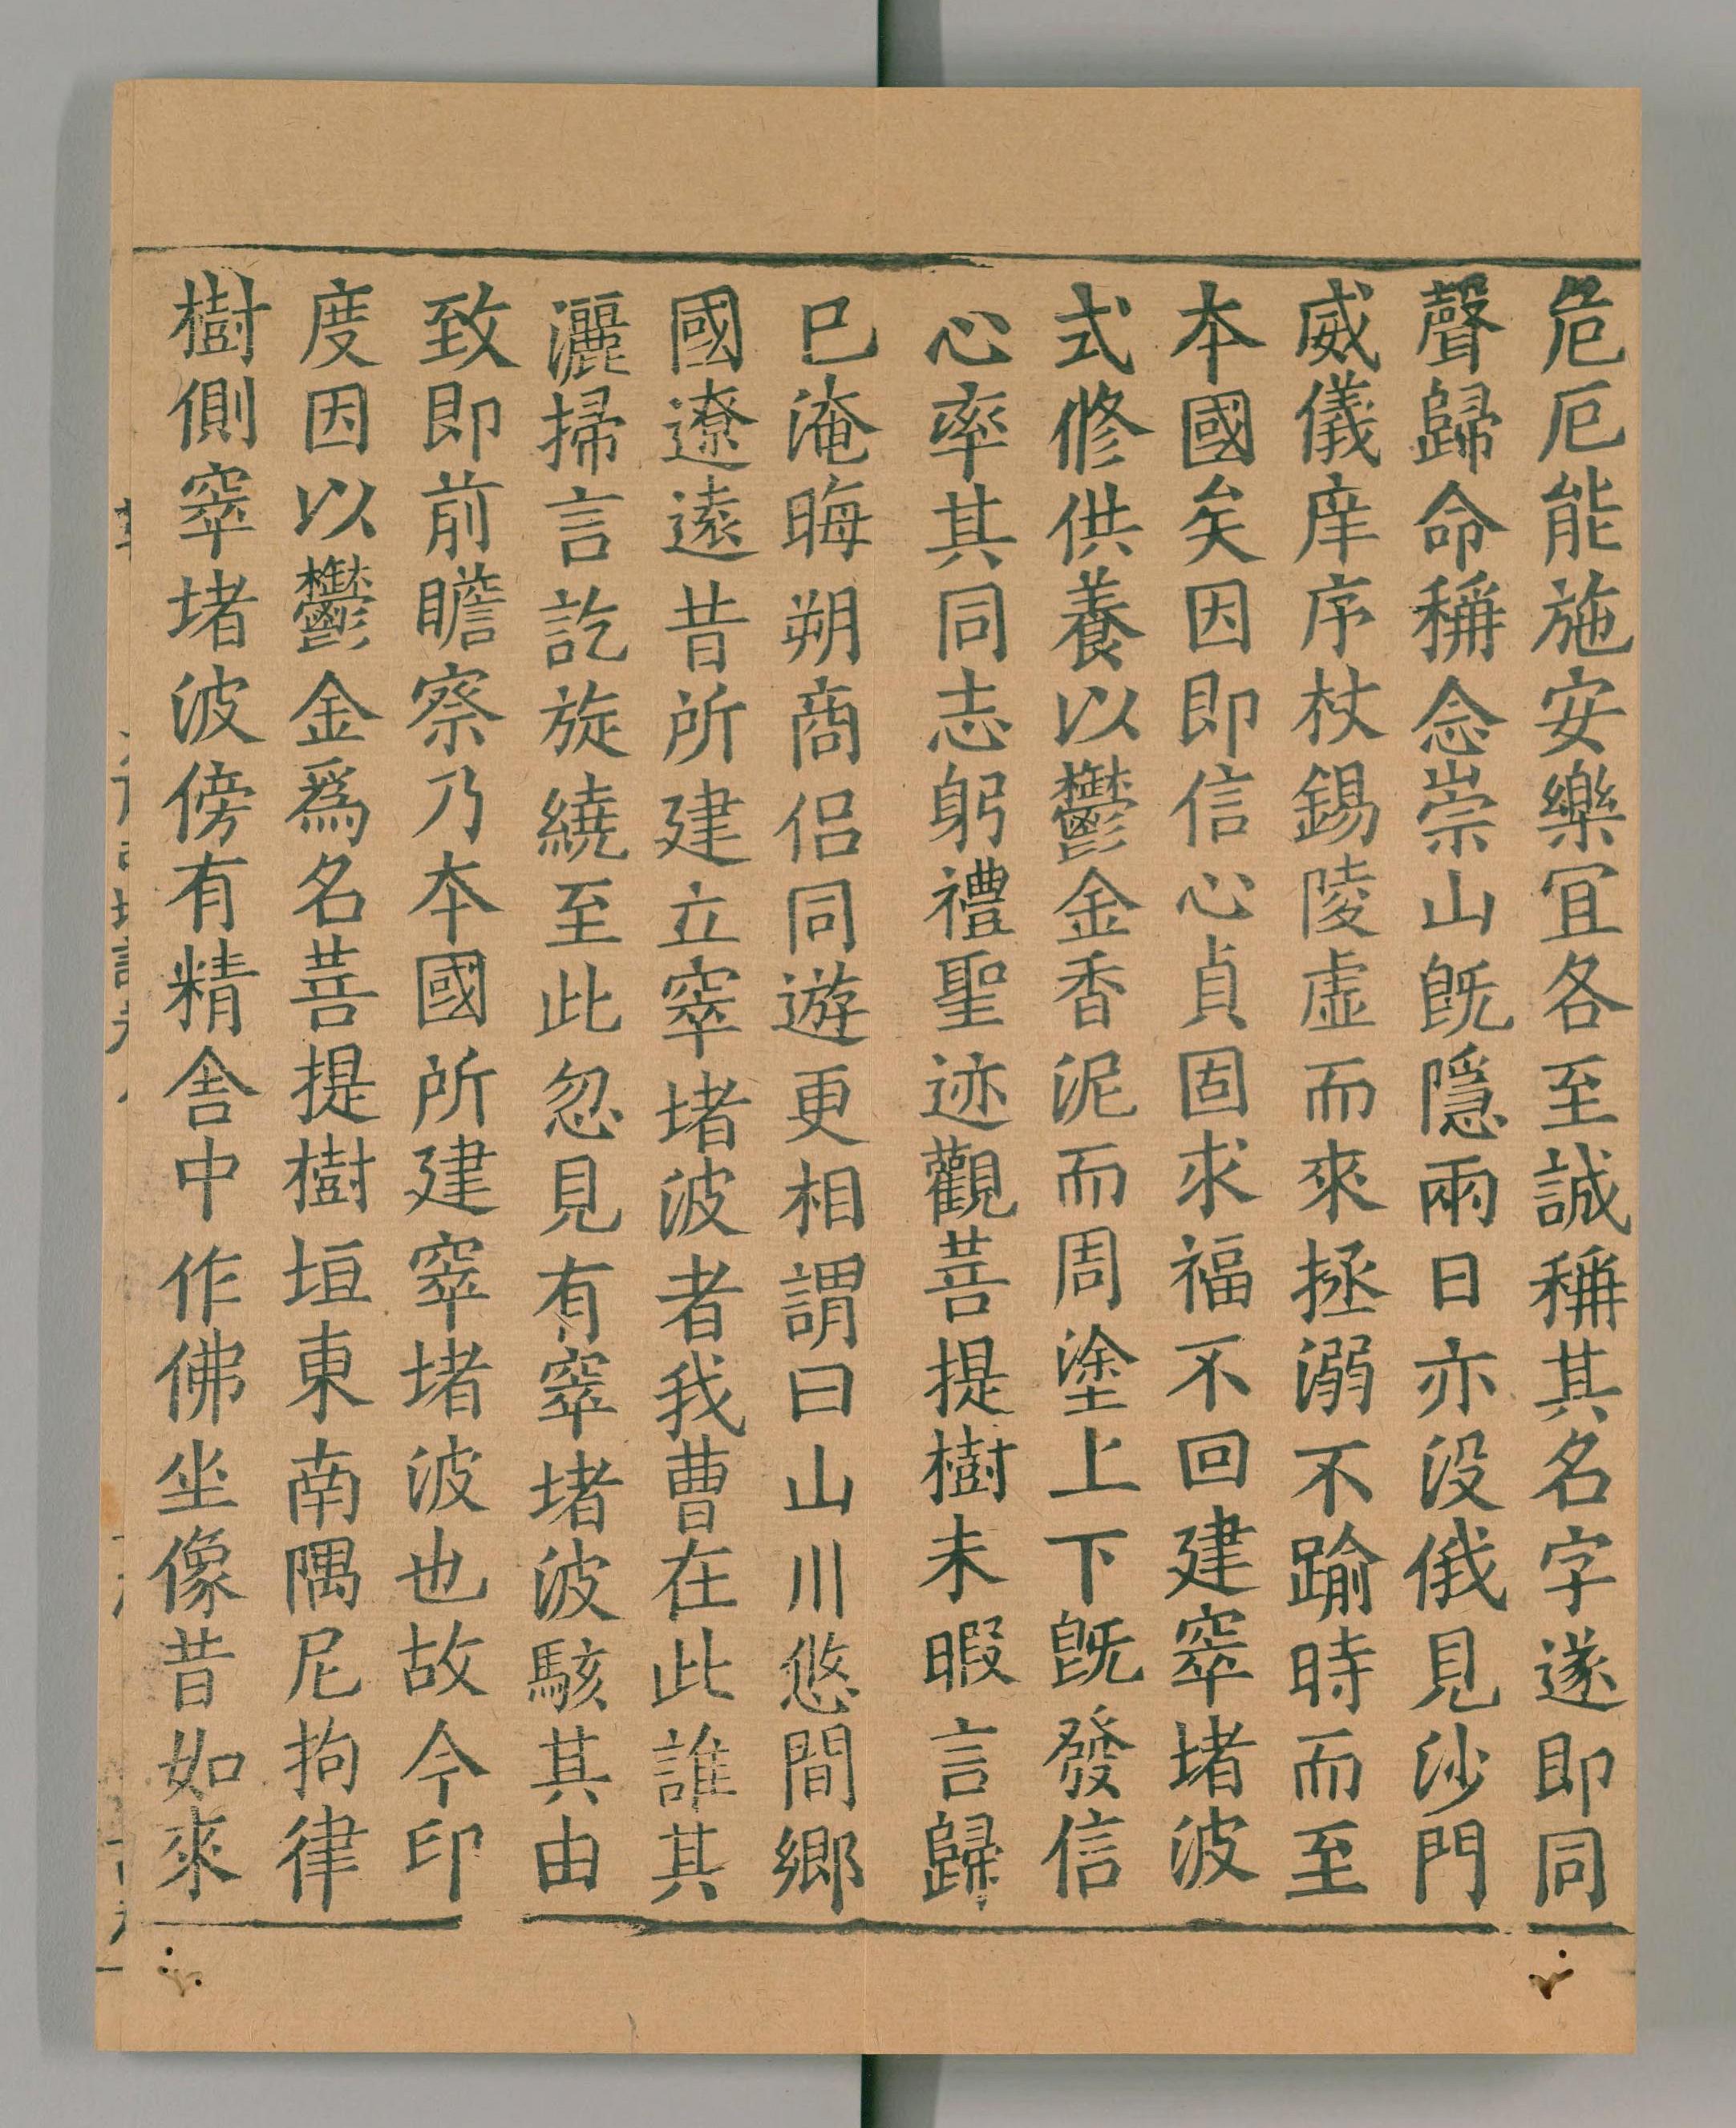 危厄能施安樂冝各至誠稱其名字遂即同
聲歸命稱念崇山旣隱兩日亦没俄見沙門
威儀庠序杖錫陵虛而來拯溺不踰時而至
本國矣因即信心貞固求福不回建窣堵波
式修供養以鬱金香泥而周塗上下旣發信
心率其同志躬禮聖迹觀菩提樹未暇言歸
已淹晦朔商侣同遊更相謂曰山川悠間鄉
國遼遠昔所建立窣堵波者我曹在此誰其
灑掃言訖旋繞至此忽見有窣堵波駭其由
致即前瞻察乃本國所建窣堵波也故今印
度因以鬱金爲名菩提樹垣東南隅尼拘律
樹側窣堵波傍有精舍中作佛坐像昔如來